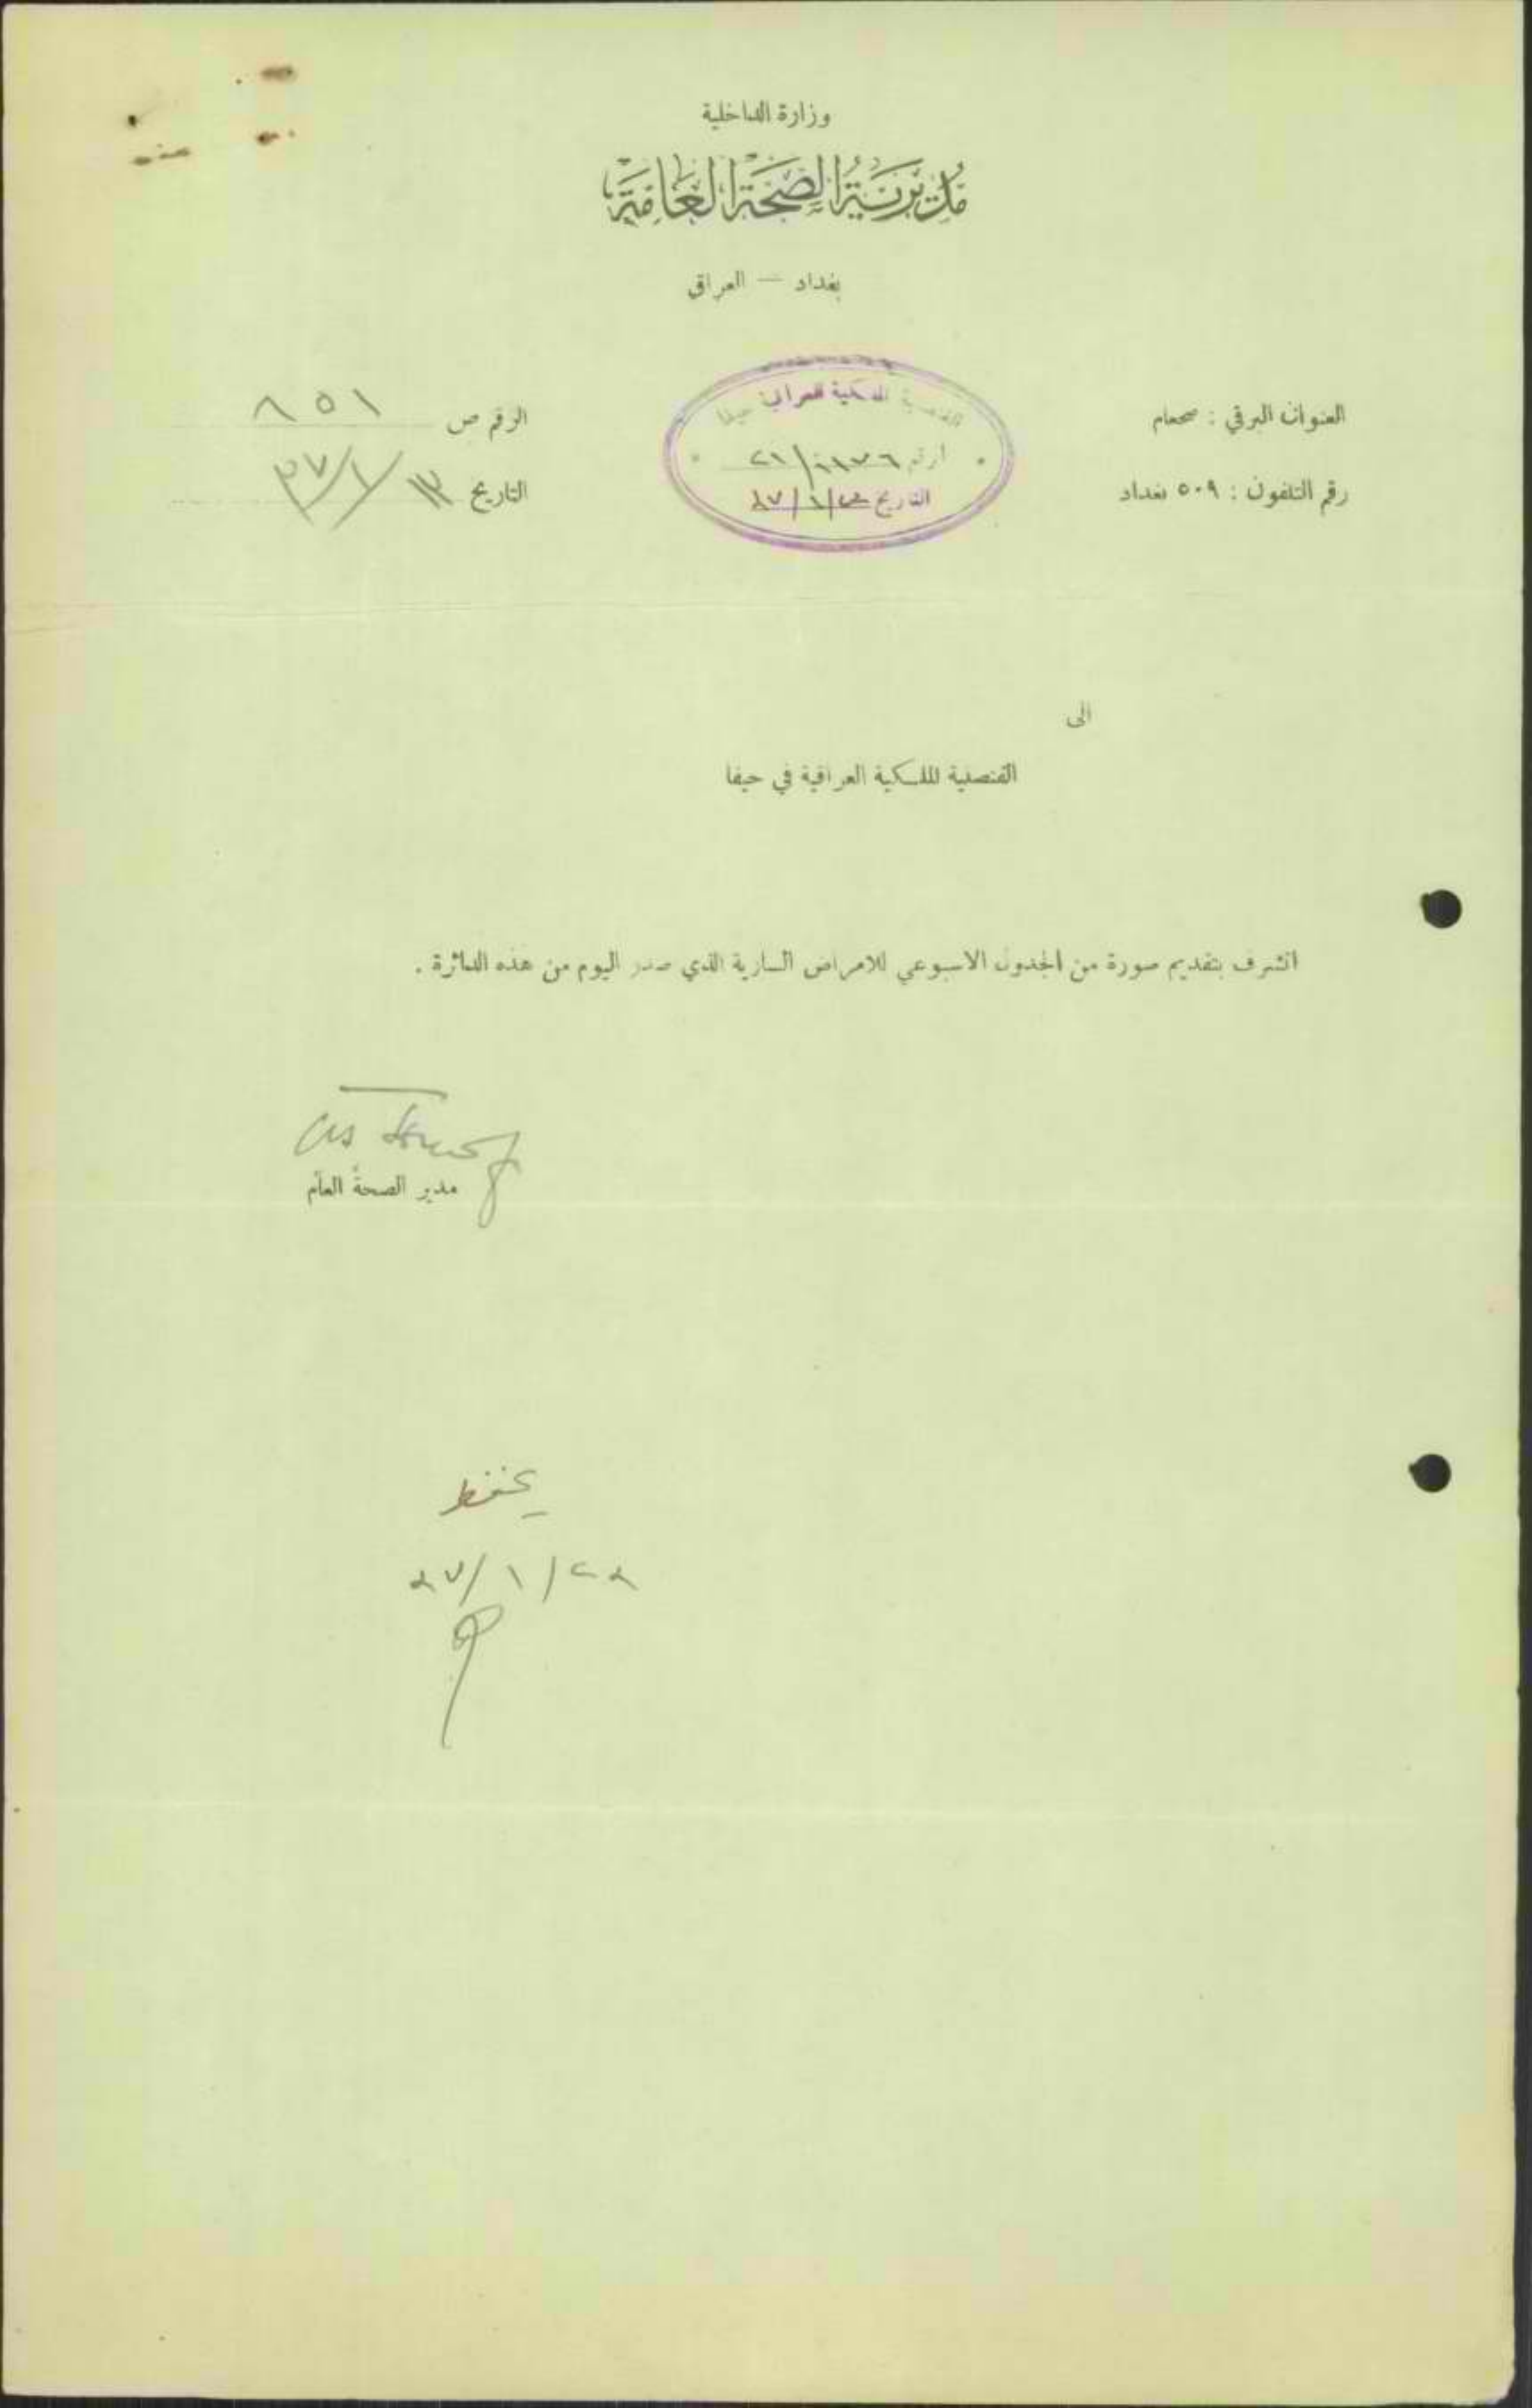 وزارة الداخلية
مديرية الصحة العامة
بغداد — العراق
العنوان البرقي : صحعام
رقم التلفون : ٥٠٩ بغداد
القنصلية الملكية العراقية حيفا
الرقم
التاريخ ٣٧/١/
الرقم ص ٨٥١
التاريخ ٣٧/١/
الى
القنصلية الملكية العراقية في حيفا
اتشرف بتقديم صورة من الجدول الاسبوعي للامراض السارية الذي صدر اليوم من هذه الدائرة .
مدير الصحة العام
يحفظ
٣٧/١/٢٣